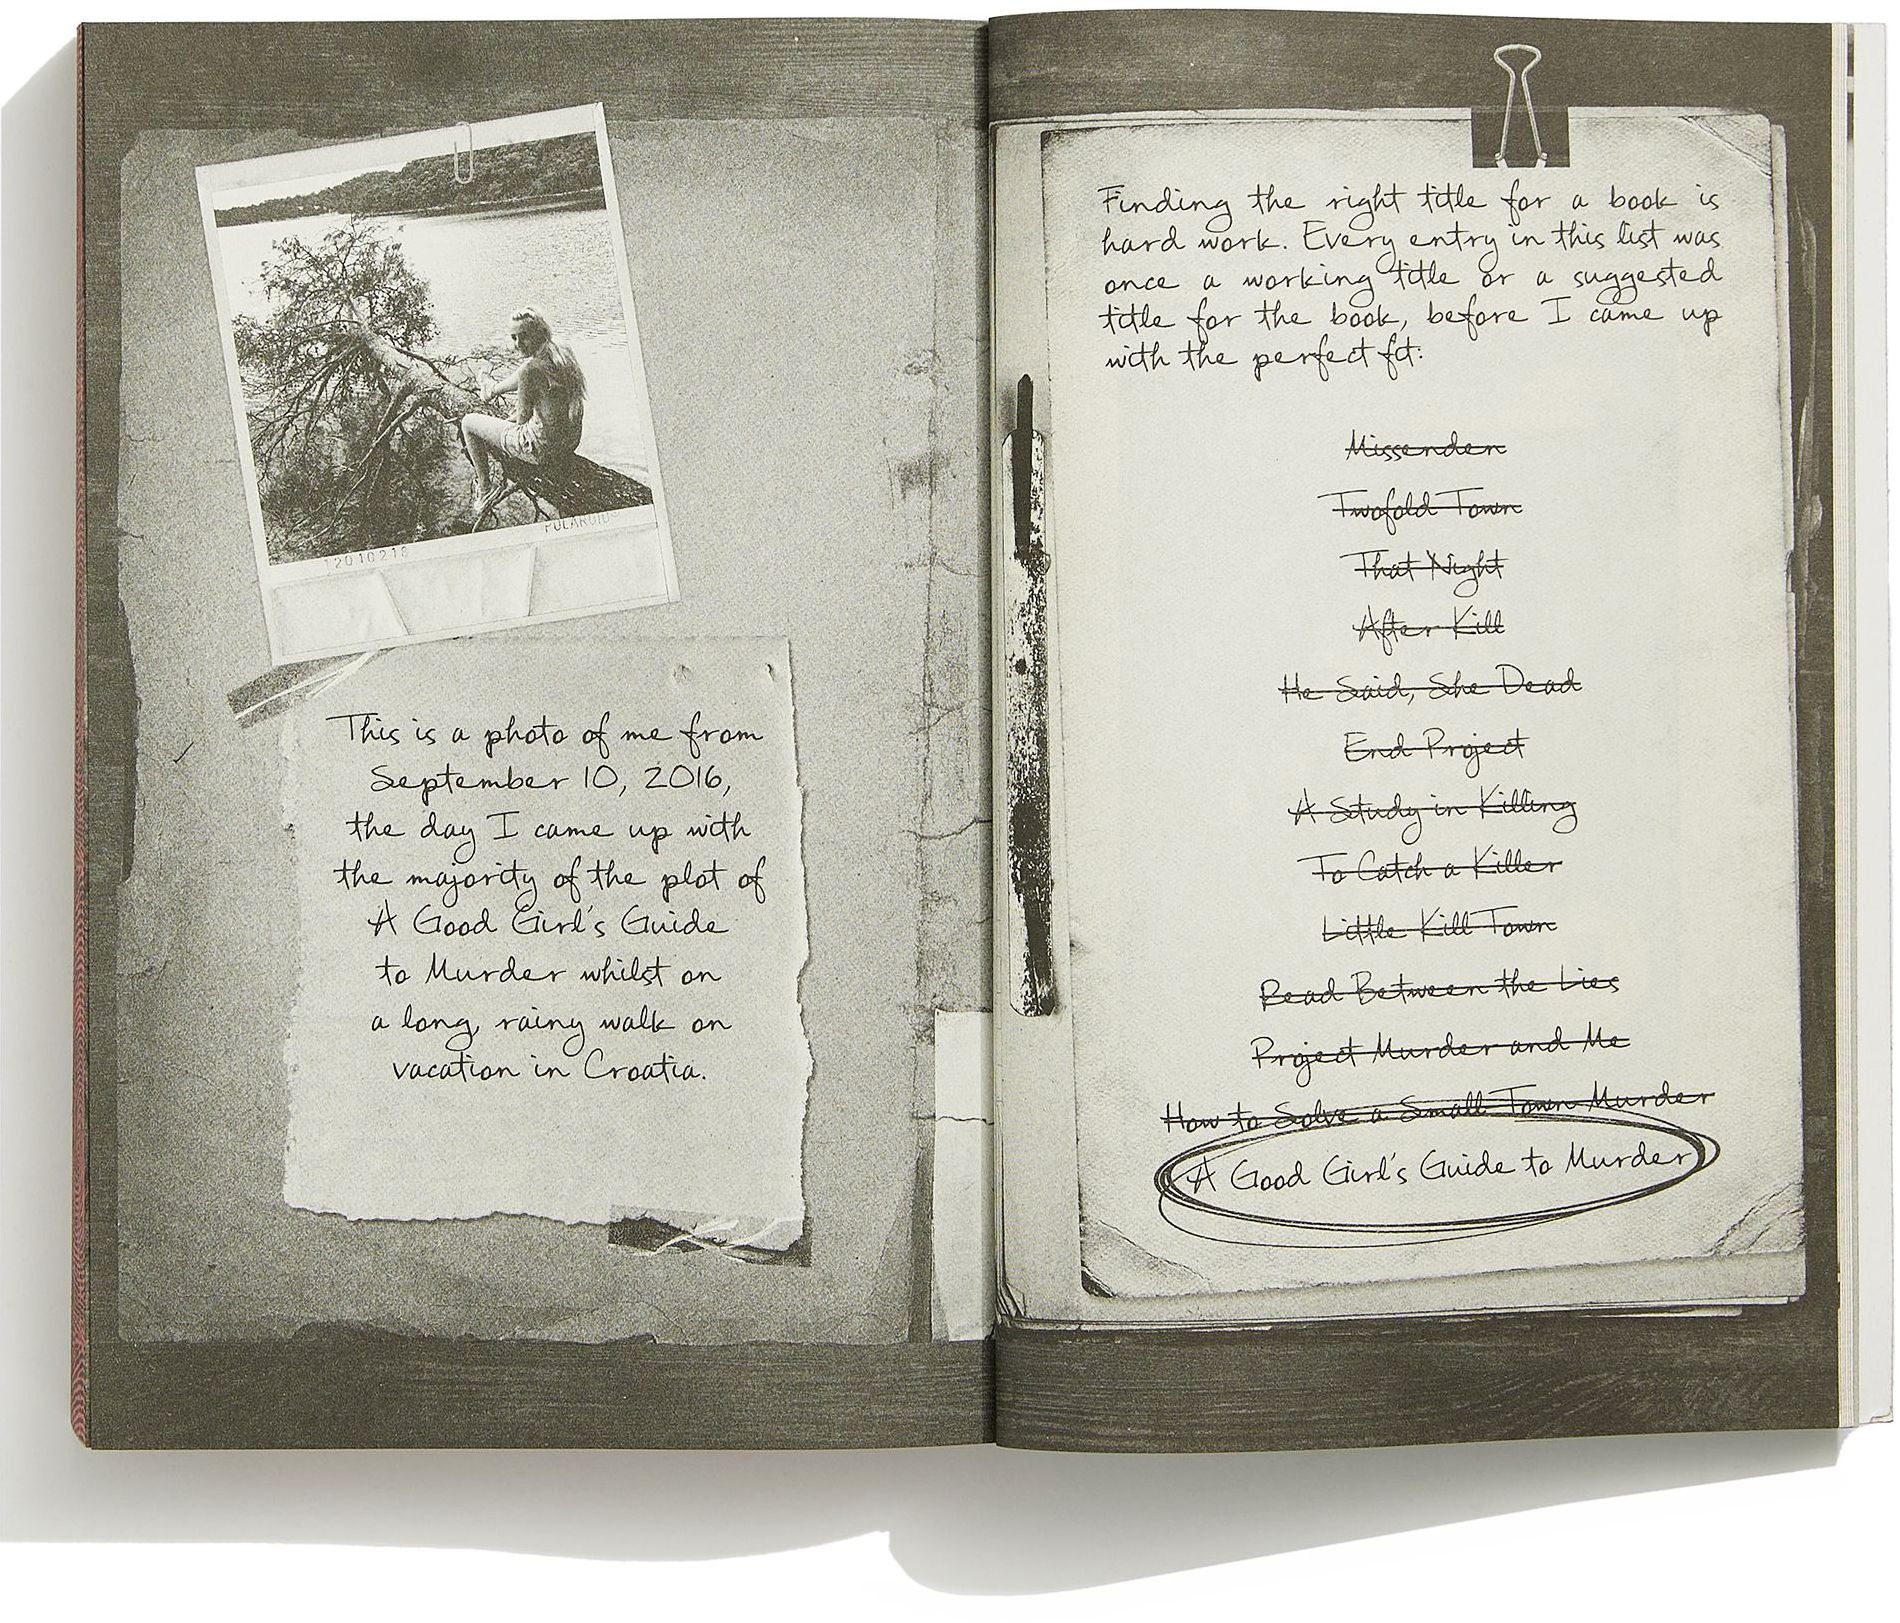 POLAROID
12010218
This is a photo of me from
September 10, 2016,
the day I came up with
the majority of the plot of
A Good Girl's Guide
to Murder whilst on
a long, rainy walk on
vacation in Croatia.
Finding the right title for a book is
hard work. Every entry in this list was
once a working title or a suggested
title for the book, before I came up
with the perfect fit:
Missenden
Twofold Town
That Night
After Kill
He Said, She Dead
End Project
A Study in Killing
To Catch a Killer
Little Kill Town
Read Between the Lies
Project Murder and Me
How to Solve a Small Town Murder
A Good Girl's Guide to Murder